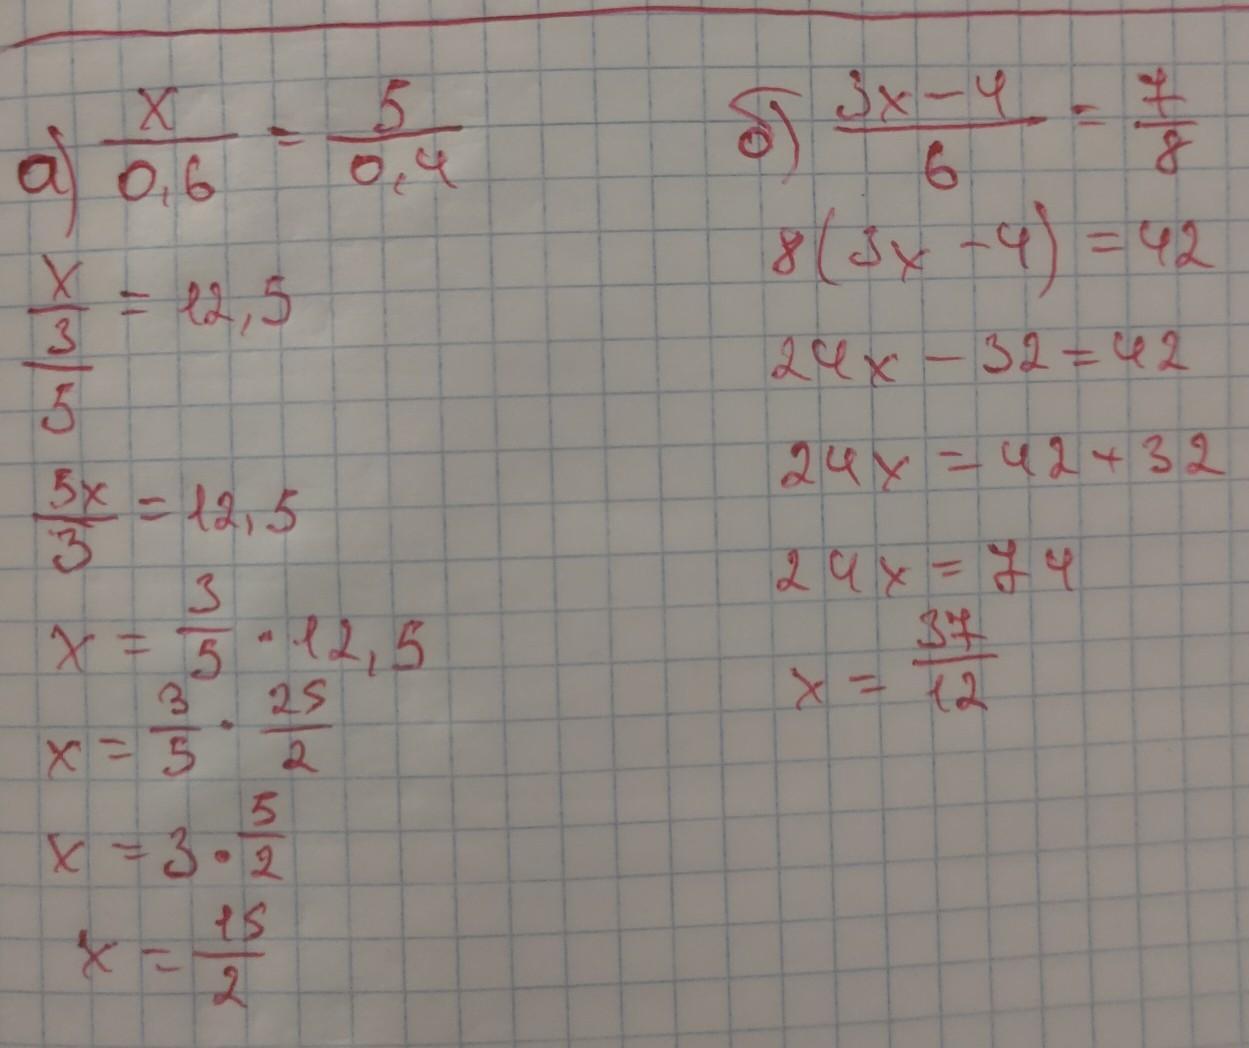 а) x/0,6 = 5/0,4
x/(3/5) = 12,5
5x/3 = 12,5
x = 3/5 · 12,5
x = 3/5 · 25/2
x = 3 · 5/2
x = 15/2
б) (3x - 4)/6 = 7/8
8(3x - 4) = 42
24x - 32 = 42
24x = 42 + 32
24x = 74
x = 37/12